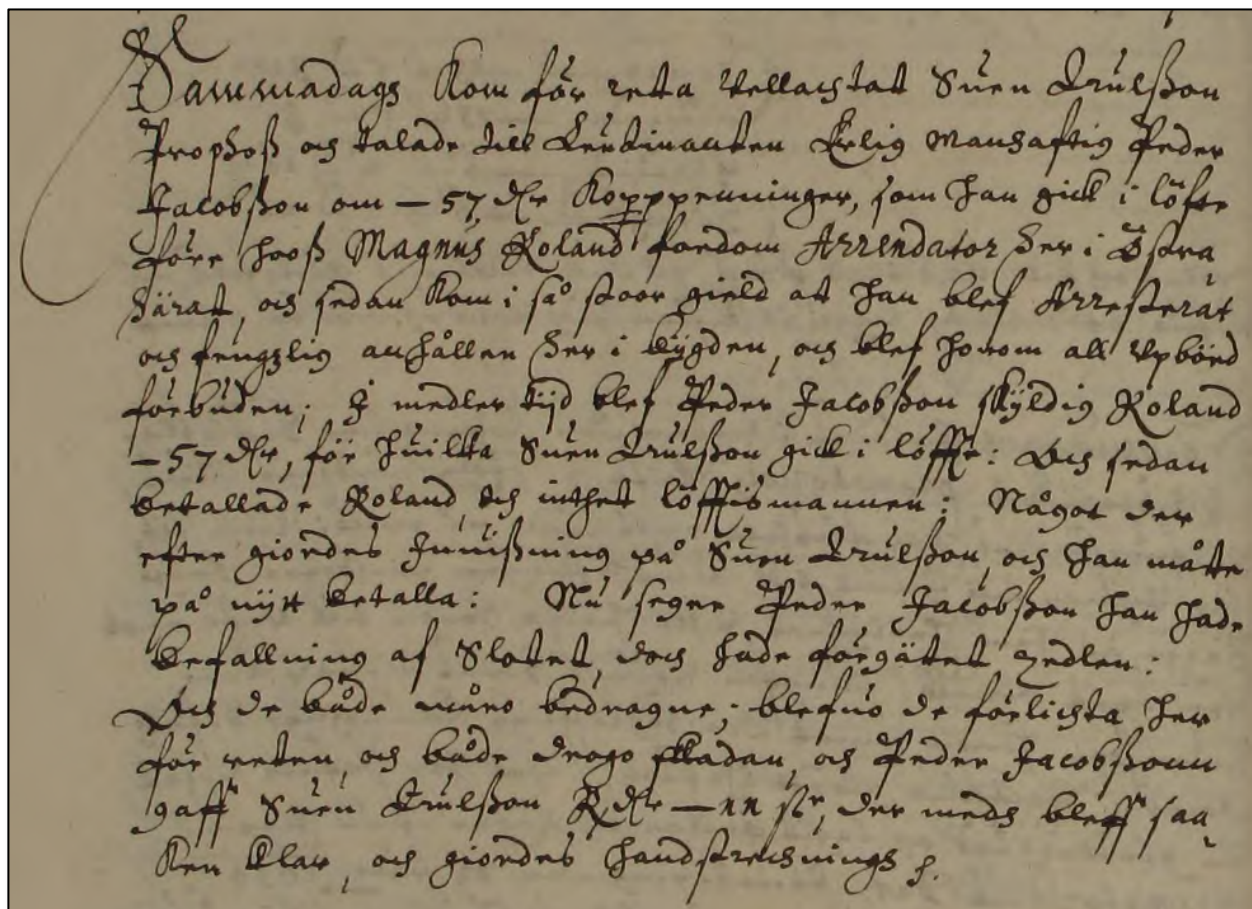 Sammadags Kom för retta Vellachtat Suen Trulsson
Prophoß och talade till Leutinanten Erlig Manhaftig Peder
Jacobßon om – 57 dlr Kopppenninger, som han gick i löfte
före hooß Magnus Roland fordom Arrendator her i Östra
härat, och sedan Kom i så stoor gield at han blef Arresterat
och fengslig anhållen her i bygden, och blef honom all Vpbörd
förbuden; I medler tijd blef Peder Jacobßon skyldig Roland
– 57 dlr, för huilka Suen Trulßon gick i löffte: Och sedan
betallade Roland, och inthet löfftismannen: Något der
efter giordes Inuißning på Suen Trulßon, och han måtte
på nytt betalla: Nu seger Peder Jacobßon han hade
befallning af Slotet, doch hade förgätet zedlen:
Och de både wåro bedragne; blefuo de förlichta her
för reten, och både drogo skadan, och Peder Jacobßonn
gaff Suen Trulßon Rdlr – 11 st, der medh bleff saa,
Ken klar, och giordes handstrechnings